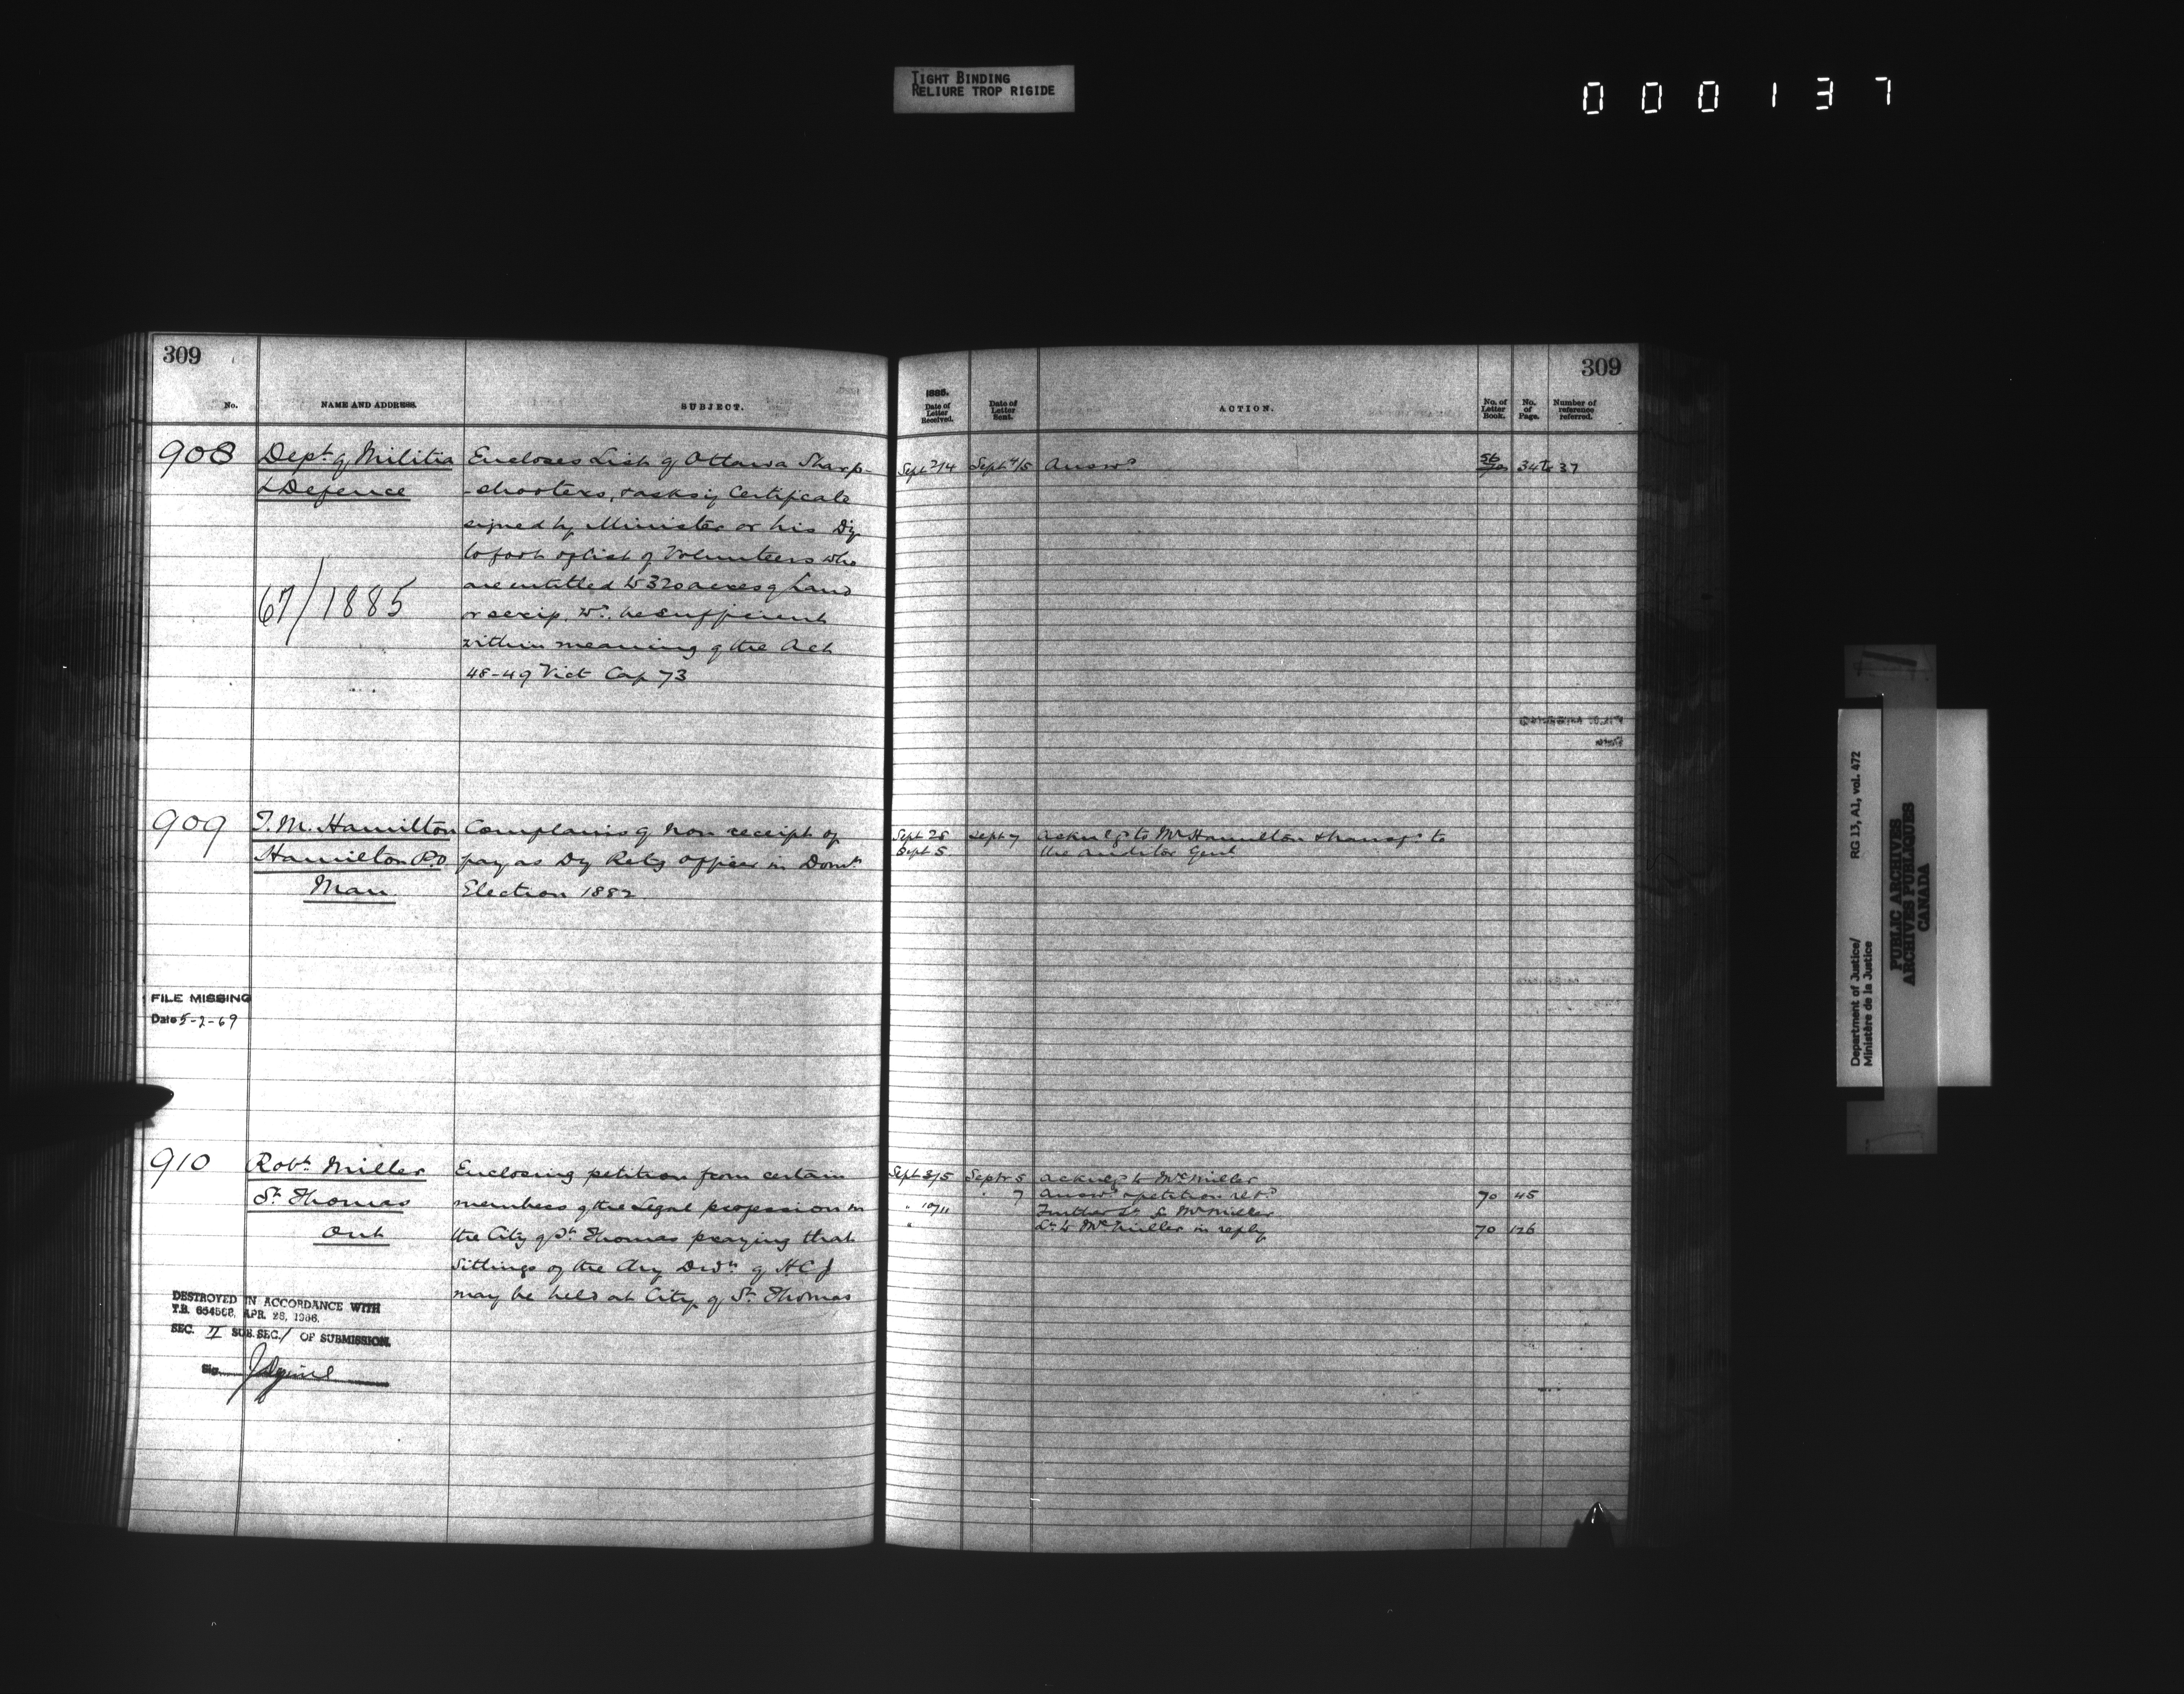 TIGHT BINDING
RELIURE TROP RIGIDE
000137
309
No.
NAME AND ADDRESS.
SUBJECT.
908
Dept. of Militia
& Defence
67/1885
Encloses List of Ottawa Sharp-
-shooters, & asks if Certificate
signed by Minister or his Dy
to foot of List of Volunteers who
are entitled to 320 acres of Land
or scrip, wd. be sufficient
within meaning of the Act
48-49 Vict Cap 73
909
T. M. Hamilton
Hamilton P.O
Man
Complains of non receipt of
pay as Dy Retg officer in Domn.
Election 1882
FILE MISSING
Date 5-2-69
910
Robt. Miller
St. Thomas
Ont
Enclosing petition from certain
members of the Legal profession in
the City of St. Thomas praying that
Sittings of the Chy Divn. of H C J
may be held at City of St. Thomas
DESTROYED IN ACCORDANCE WITH
T.B. 654568, APR. 28, 1966.
SEC. II SUB. SEC. / OF SUBMISSION.
Sig.
309
1885.
Date of
Letter
Received.
Date of
Letter
Sent.
ACTION.
No. of
Letter
Book.
No.
of
Page.
Number of
reference
referred.
Sept 2/4 Sept 4/5 Answd 56 34 to 37
Sept 28 Sept 7 Acknlgd to Mr Hamilton & transfd. to
Sept 5 the Auditor Genl
Sept 3/5 Septr 5 Acknlgd to Mr Miller
" 7 Answd & petition retd 70 45
" 10/11 Further Lr fr Mr Miller
" Lr to Mr Miller in reply 70 126
Department of Justice/
Ministère de la Justice
RG 13, A1, vol. 472
PUBLIC ARCHIVES
ARCHIVES PUBLIQUES
CANADA